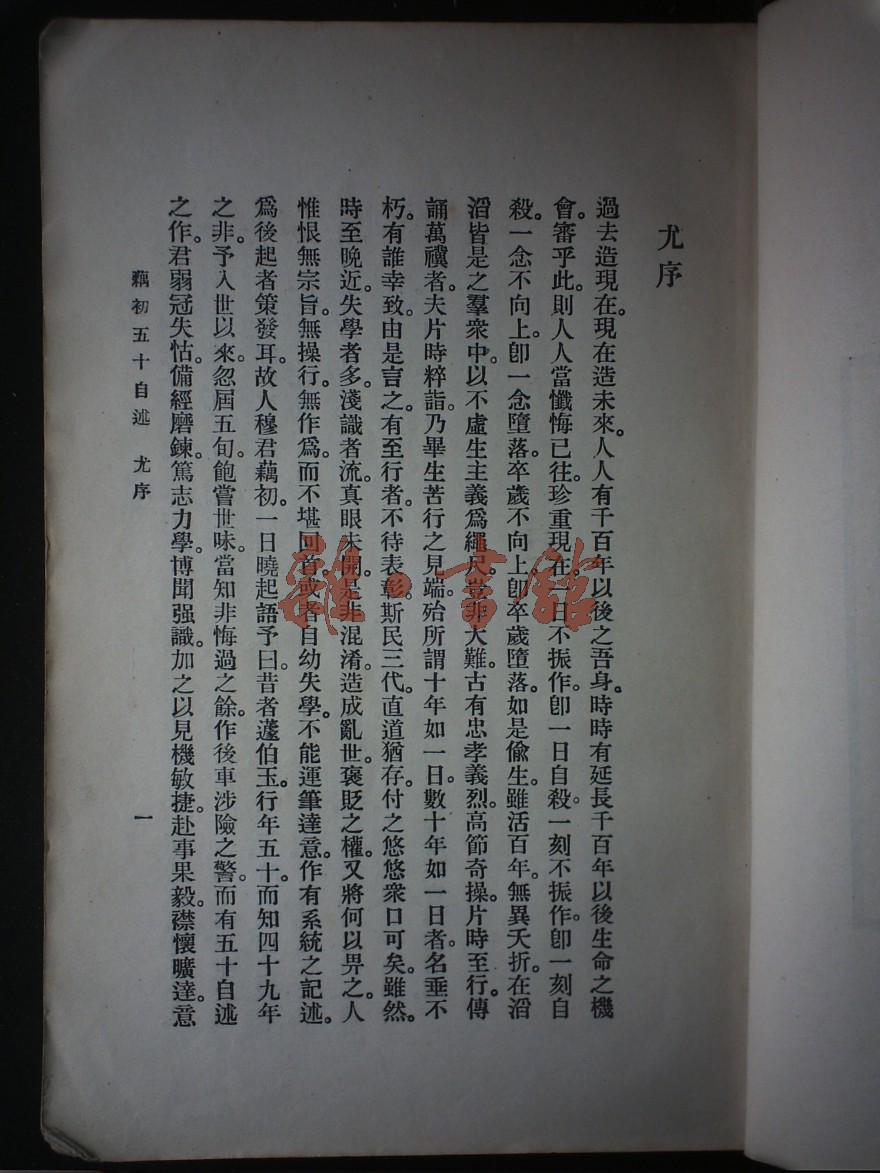 尤序
過去造現在。現在造未來。人人有千百年以後之吾身。時時有延長千百年以後生命之機
會。審乎此。則人人當懺悔已往。珍重現在。一日不振作。卽一日自殺。一刻不振作。卽一刻自
殺。一念不向上。卽一念墮落。卒歲不向上。卽卒歲墮落。如是偸生。雖活百年。無異夭折。在滔
滔皆是之羣衆中。以不虛生主義爲繩尺。豈非大難。古有忠孝義烈。高節奇操。片時至行。傳
誦萬禩者。夫片時粹詣。乃畢生苦行之見端。殆所謂十年如一日。數十年如一日者。名垂不
朽。有誰幸致。由是言之。有至行者。不待表彰。斯民三代。直道猶存。付之悠悠衆口可矣。雖然。
時至晚近。失學者多。淺識者流。眞眼未開。是非混淆。造成亂世。褒貶之權。又將何以畀之。人
惟恨無宗旨。無操行。無作爲。而不堪回首。或者自幼失學。不能運筆達意。作有系統之記述。
爲後起者策發耳。故人穆君藕初。一日曉起語予曰。昔者蘧伯玉。行年五十。而知四十九年
之非。予入世以來。忽屆五旬。飽嘗世味。當知非悔過之餘。作後車涉險之警。而有五十自述
之作。君弱冠失怙。備經磨鍊。篤志力學。博聞强識。加之以見機敏捷。赴事果毅。襟懷曠達。意
藕初五十自述 尤序 一
雜·書館